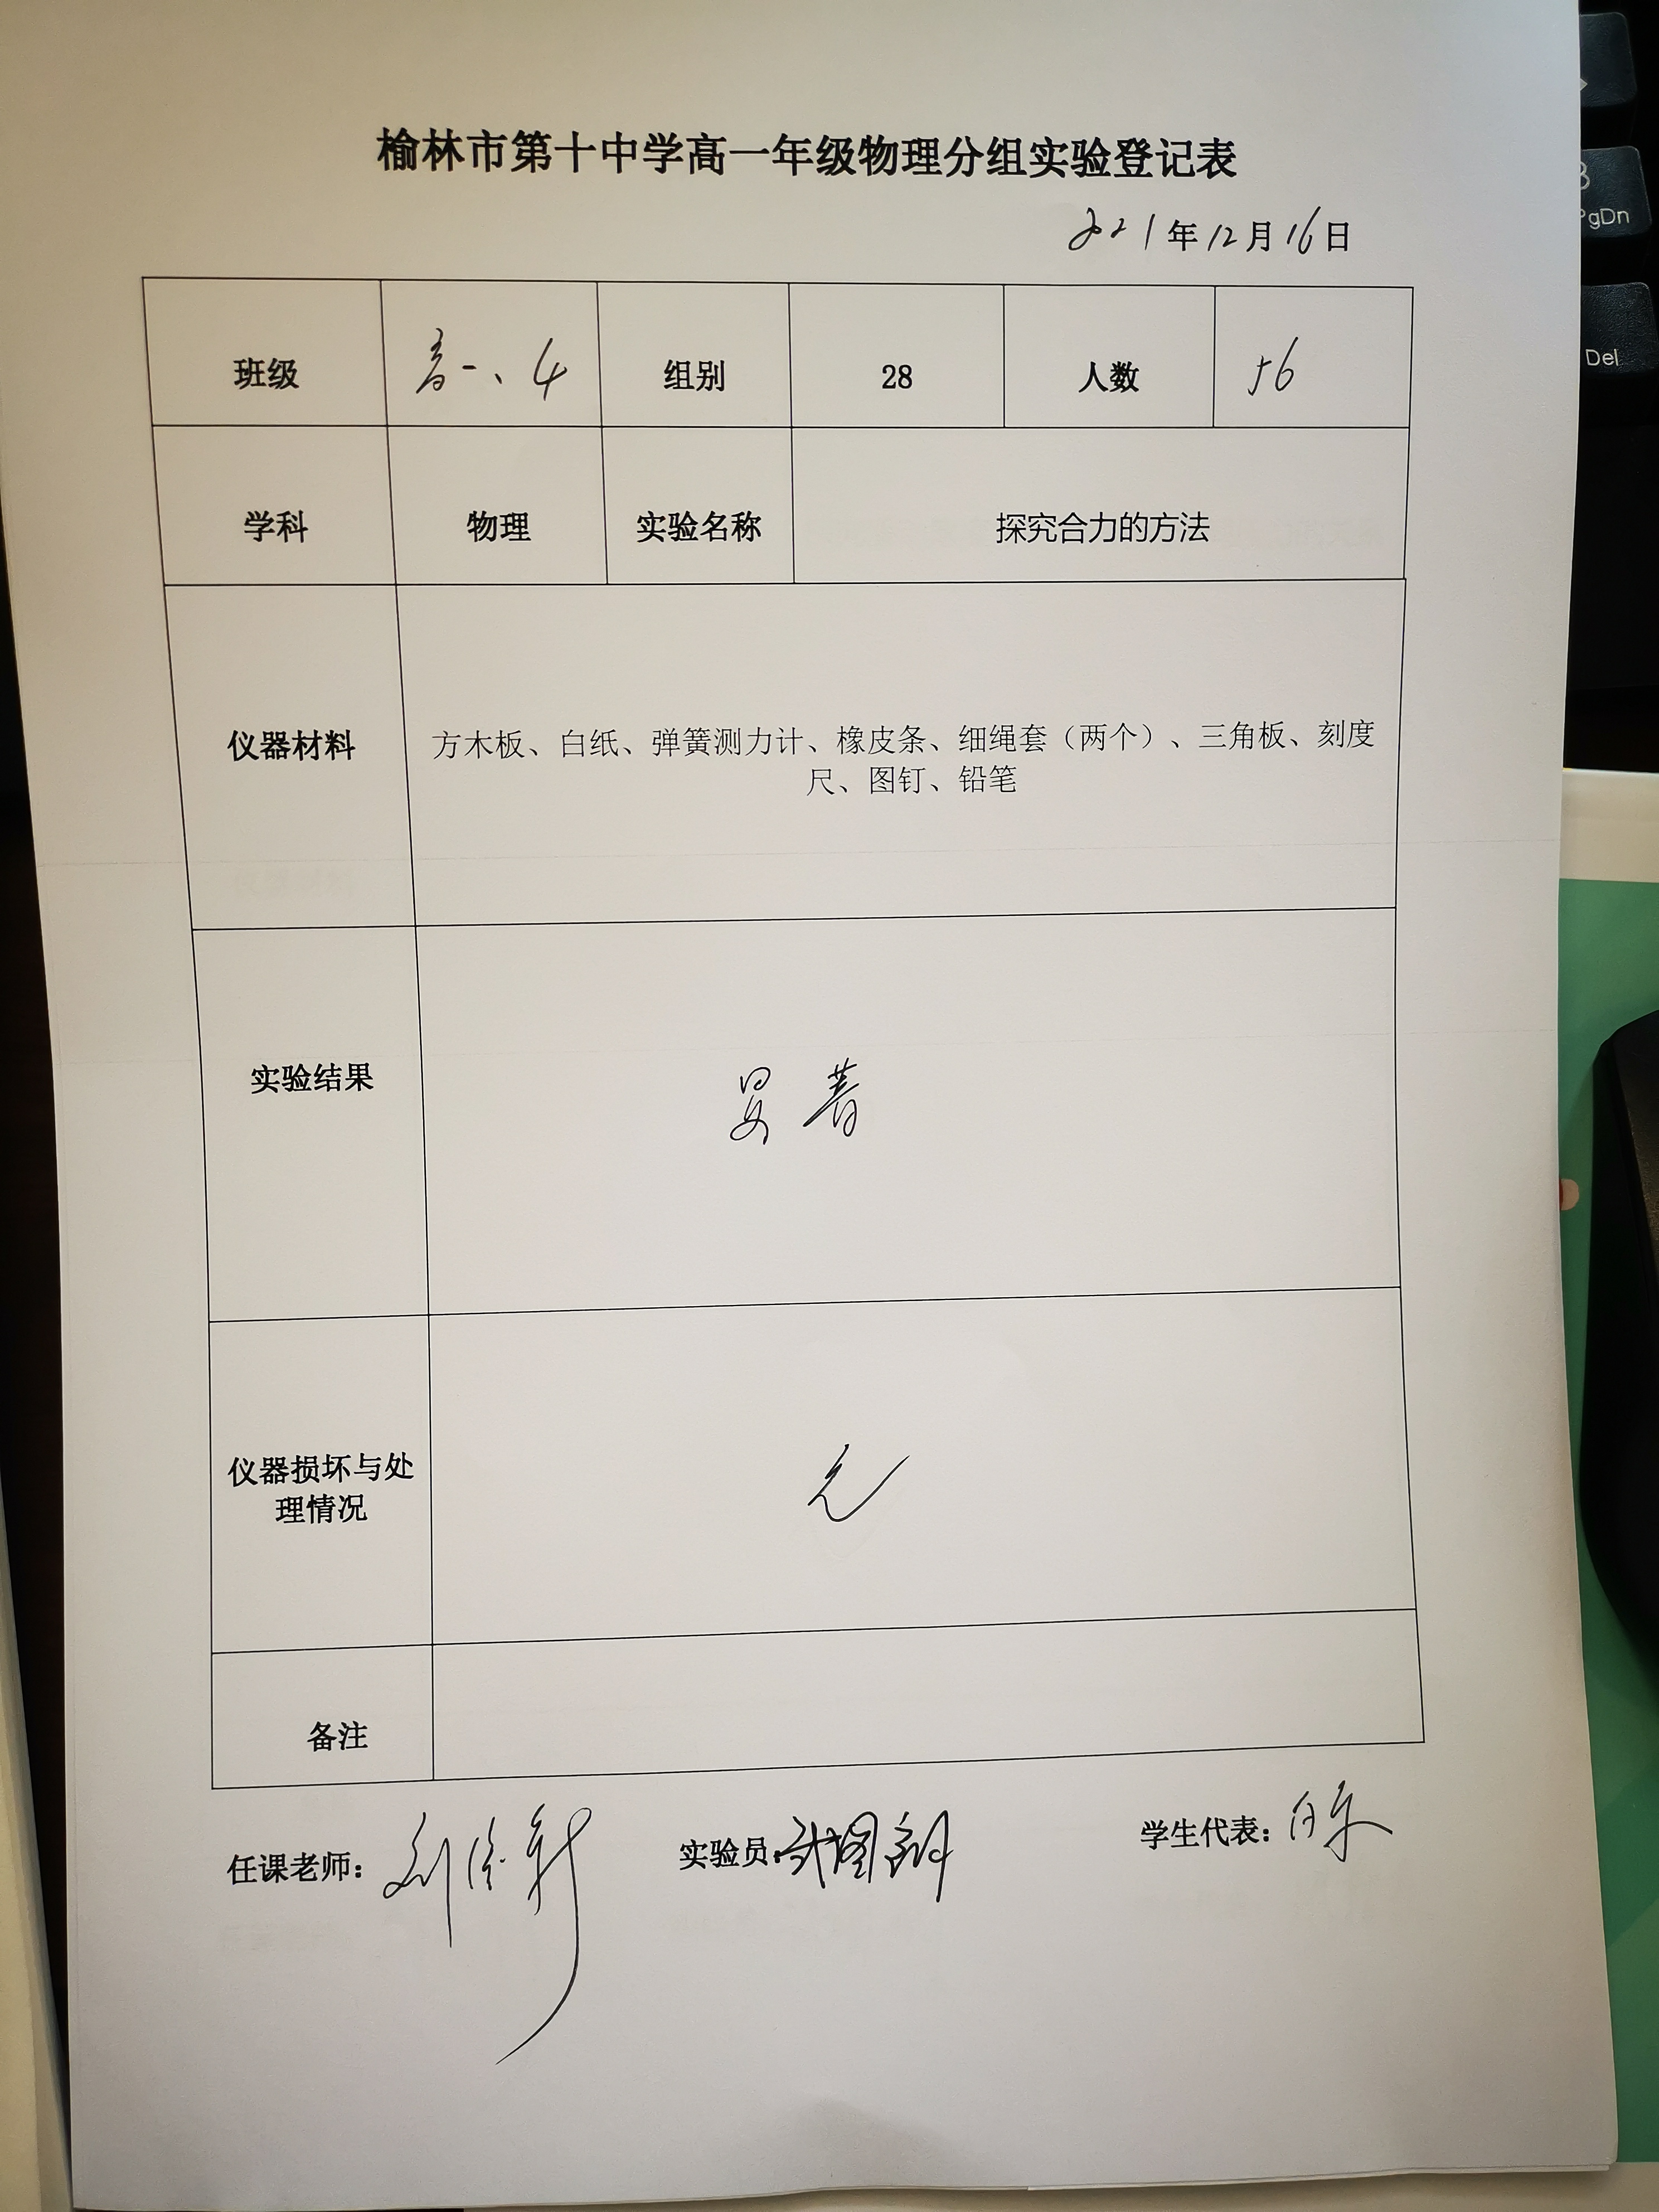 榆林市第十中学高一年级物理分组实验登记表
2021年12月16日
班级 高一、4 组别 28 人数 56
学科 物理 实验名称 探究合力的方法
仪器材料 方木板、白纸、弹簧测力计、橡皮条、细绳套（两个）、三角板、刻度
尺、图钉、铅笔
实验结果
仪器损坏与处
理情况 无
备注
任课老师： 实验员： 学生代表：
PgDn
Del